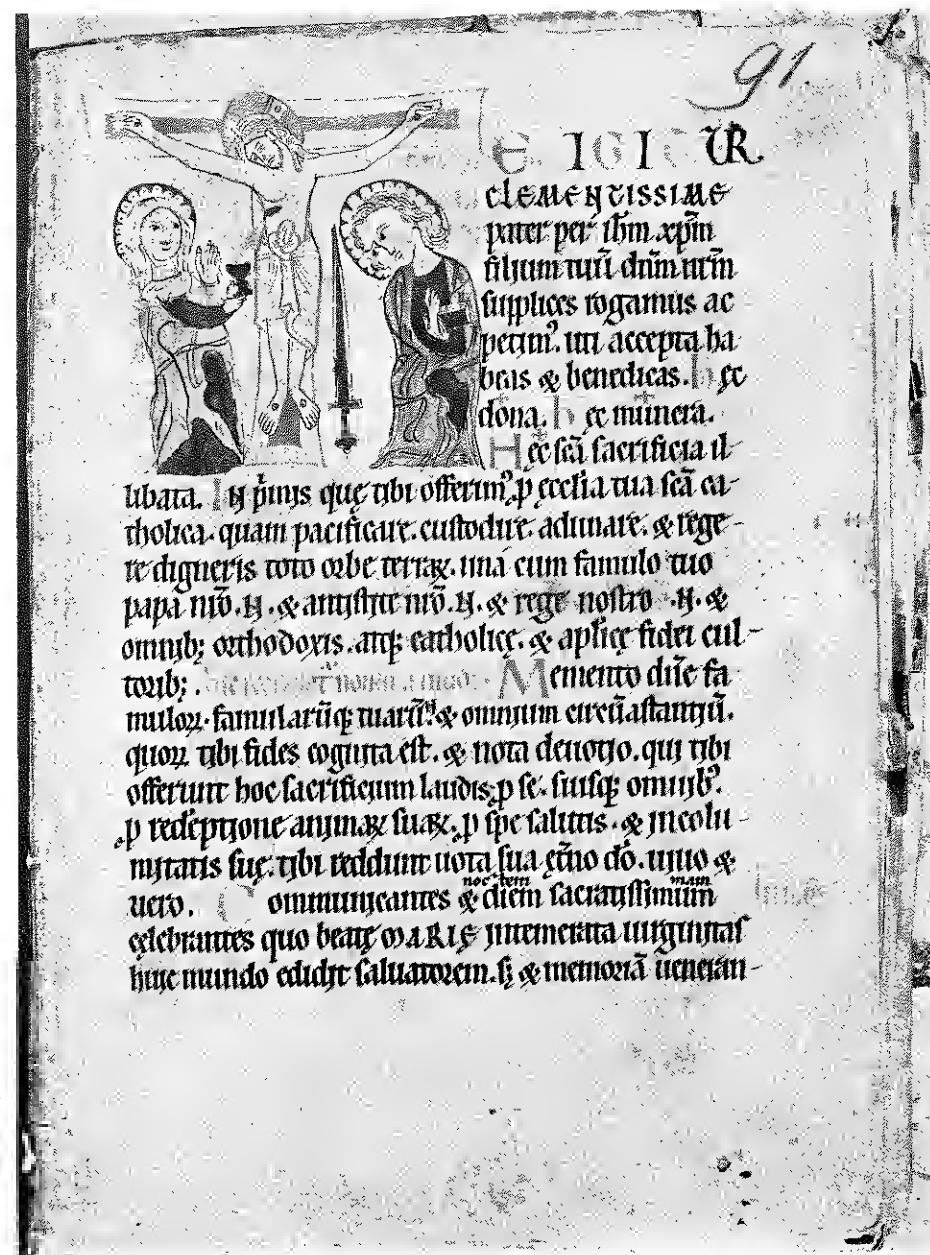 91.
E IGITUR
CLEMENTISSIME
pater per ihm. xpm̄
filium tuū dnm̄ nrm̄
supplices rogamus ac
petim᾽. uti accepta ha
beas & benedicas. h ęc
dona. h ęc munera.
H ęc sc̄a sacrificia il-
libata. IN p̄mis quę tibi offerim᾽. ꝑ ęcclia tua sc̄a ca-
tholica. quam pacificare. custodire. adunare. & rege-
re digneris toto orbe terraꝝ. una cum famulo tuo
papa nr̄o. N. & antistite nr̄o. N. & rege nostro .N. &
omnib; orthodoxis. atq; catholicę. & aplicę fidei cul-
torib;. Memento dn̄e fa
muloꝝ. famularūq; tuarū. N & omnium circūastantiū.
quoꝝ tibi fides cognita est. & nota deuotio. qui tibi
offerunt hoc sacrificium laudis. ꝑ se. suisq; omnib᾽.
ꝑ redēptione animaꝝ suaꝝ. ꝑ spe salutis. & incolu-
mitatis suę. tibi reddunt uota sua ęt̄no dō. uiuo &
uero. C ommunicantes & noctem diem sacratissimum mam
cęlebrantes quo beatę MARIĘ intemerata uirginitas
huic mundo edidit saluatorem. sȝ & memoriā ueneran-